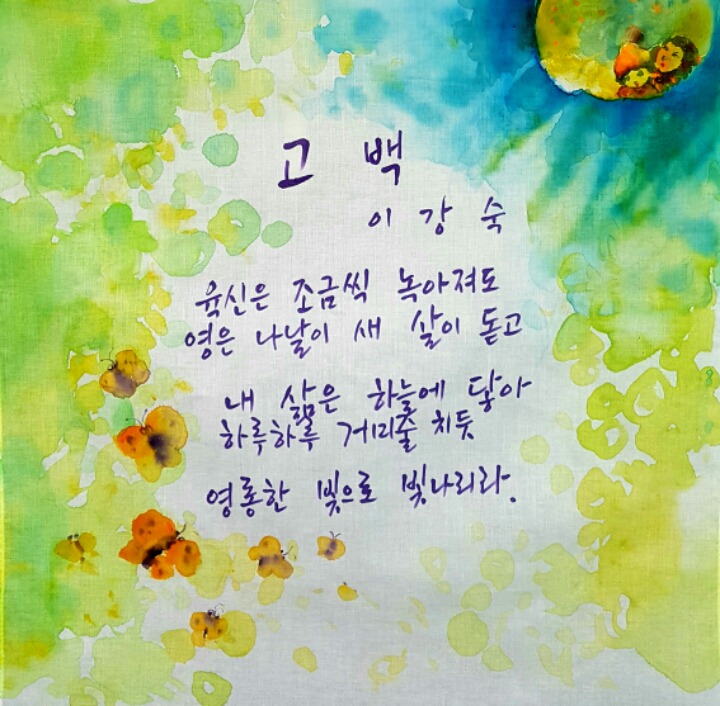 고백
이강숙
육신은 조금씩 녹아져도
영은 나날이 새 살이 돋고
내 삶은 하늘에 닿아
하루하루 거미줄 치듯
영롱한 빛으로 빛나리라.